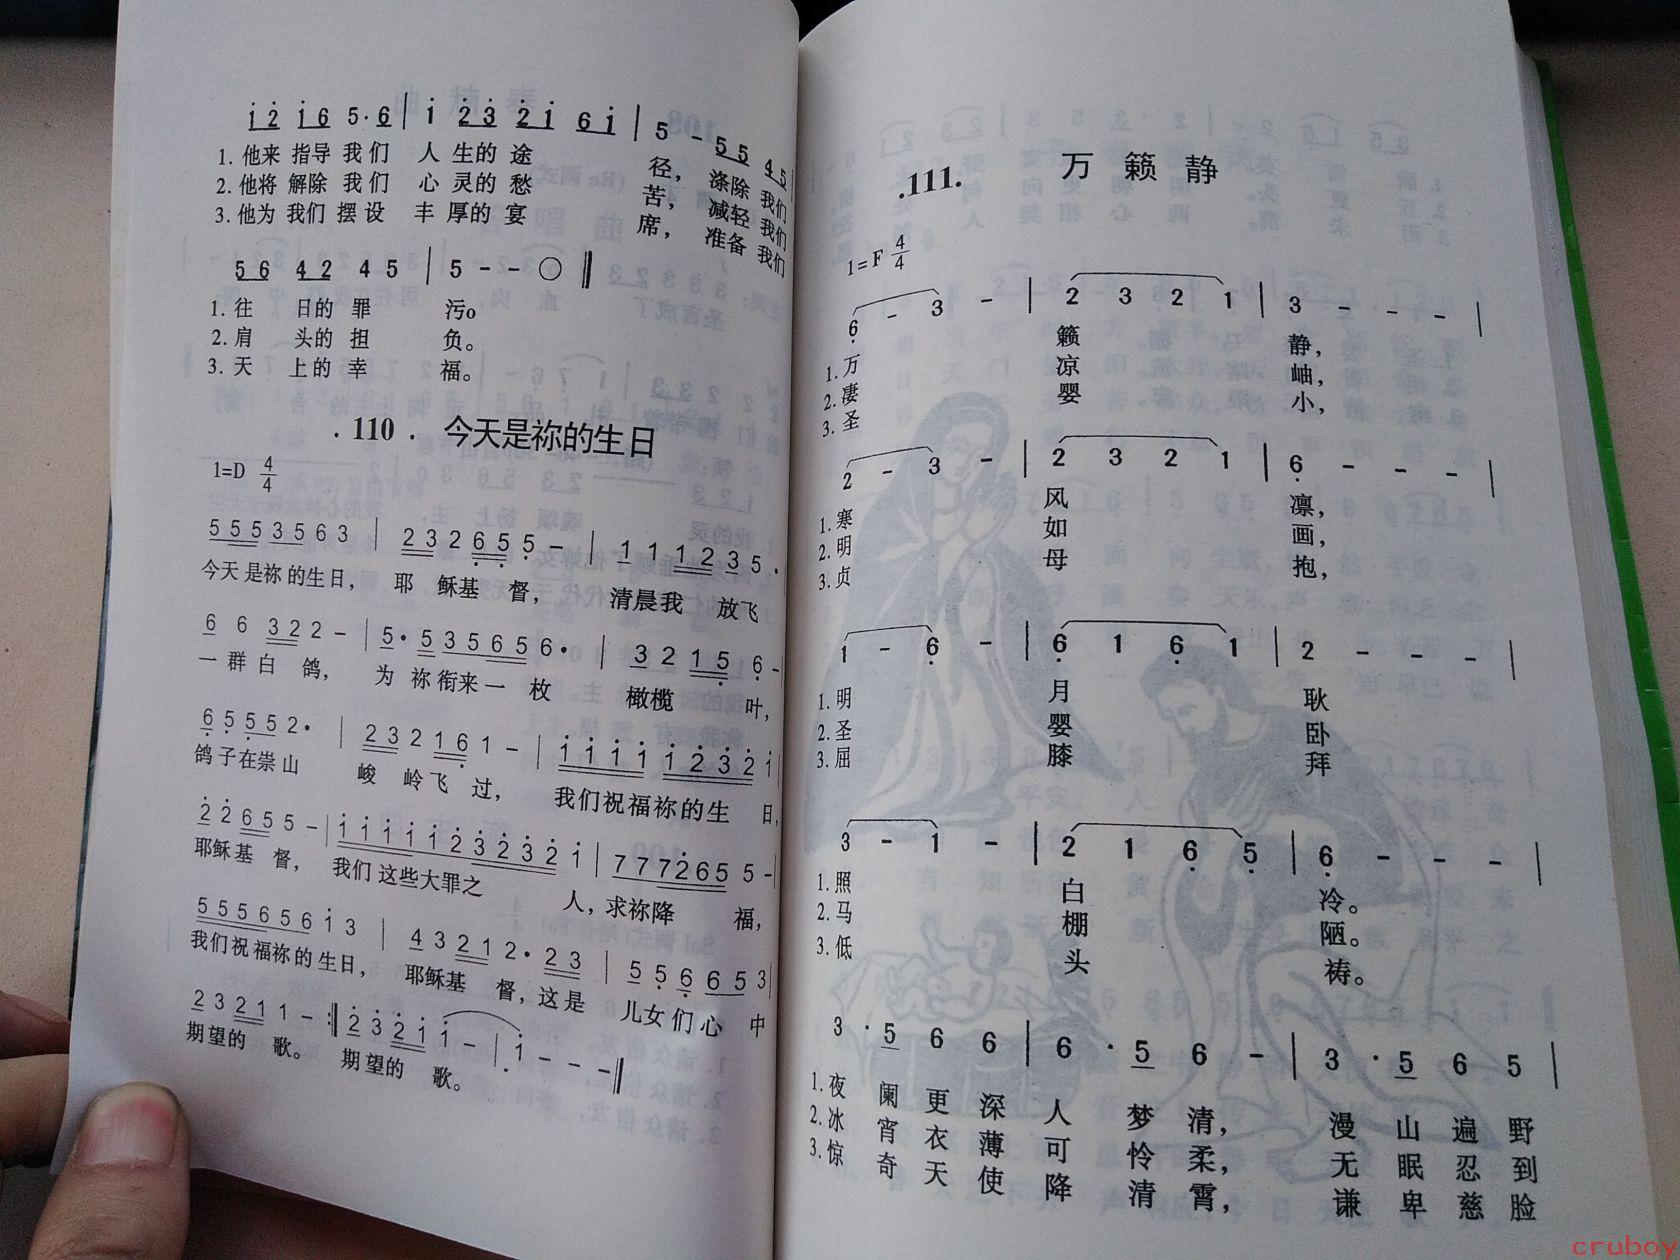 1̇ 2̇ 1̇ 6 5· 6 | 1̇ 2̇ 3̇ 2̇ 1̇ 6 1̇ | 5 - 5 5 4 5
1. 他来 指导 我们 人 生的 途 径， 涤除 我们
2. 他将 解除 我们 心 灵的 愁 苦， 减轻 我们
3. 他为 我们 摆设 丰 厚的 宴 席， 准备 我们
5 6 4 2 4 5 | 5 - - ○ ‖
1. 往 日的 罪 污。
2. 肩 头的 担 负。
3. 天 上的 幸 福。
. 110 . 今天是祢的生日
1=D 4/4
5 5 5 3 5 6 3 | 2 3 2 6 5 5 - | 1 1 1 1 2 3 5 ·
今天是祢的生日， 耶 稣基 督， 清晨我 放飞
6 6 3 2 2 - | 5· 5 3 5 6 5 6· | 3 2 1 5 6 -
一 群 白 鸽， 为 祢衔来一 枚 橄榄 叶，
6 5 5 5 2· | 2 3 2 1 6 1 - | 1̇ 1̇ 1̇ 1̇ 1̇ 2̇ 3̇ 2̇ 1̇
鸽子在崇山 峻 岭飞 过， 我们祝福祢的生 日，
2̇ 2̇ 6 5 5 - | 1̇ 1̇ 1̇ 1̇ 1̇ 2̇ 3̇ 2̇ 3̇ 2̇ 1̇ | 7 7 7 2̇ 6 5 5 -
耶稣基 督， 我们这些大罪之 人，求祢降 福，
5 5 5 6 5 6 1̇ 3 | 4 3 2 1 2· 2 3 | 5 5 6 6 5 3
我们祝福祢的生日， 耶稣基 督，这是 儿女们心 中
2 3 2 1 1 - :‖ 2̇ 3̇ 2̇ 1̇ 1̇ - | 1̇ - - - ‖
期望的 歌。 期望的 歌。
.111. 万 籁 静
1=F 4/4
6 - 3 - | 2 3 2 1 | 3 - - - |
1. 万 籁 静，
2. 凄 凉 岫，
3. 圣 婴 小，
2 - 3 - | 2 3 2 1 | 6 - - - |
1. 寒 风 凛，
2. 明 如 画，
3. 贞 母 抱，
1 - 6 - | 6 1 6 1 | 2 - - - |
1. 明 月 耿
2. 圣 婴 卧
3. 屈 膝 拜
3 - 1 - | 2 1 6 5 | 6 - - - |
1. 照 白 冷。
2. 马 棚 陋。
3. 低 头 祷。
3 · 5 6 6 | 6 · 5 6 - | 3 · 5 6 5 |
1. 夜 阑 更 深 人 梦 清， 漫 山 遍 野
2. 冰 宵 衣 薄 可 怜 柔， 无 眠 忍 到
3. 惊 奇 天 使 降 清 霄， 谦 卑 慈 脸
cruboy